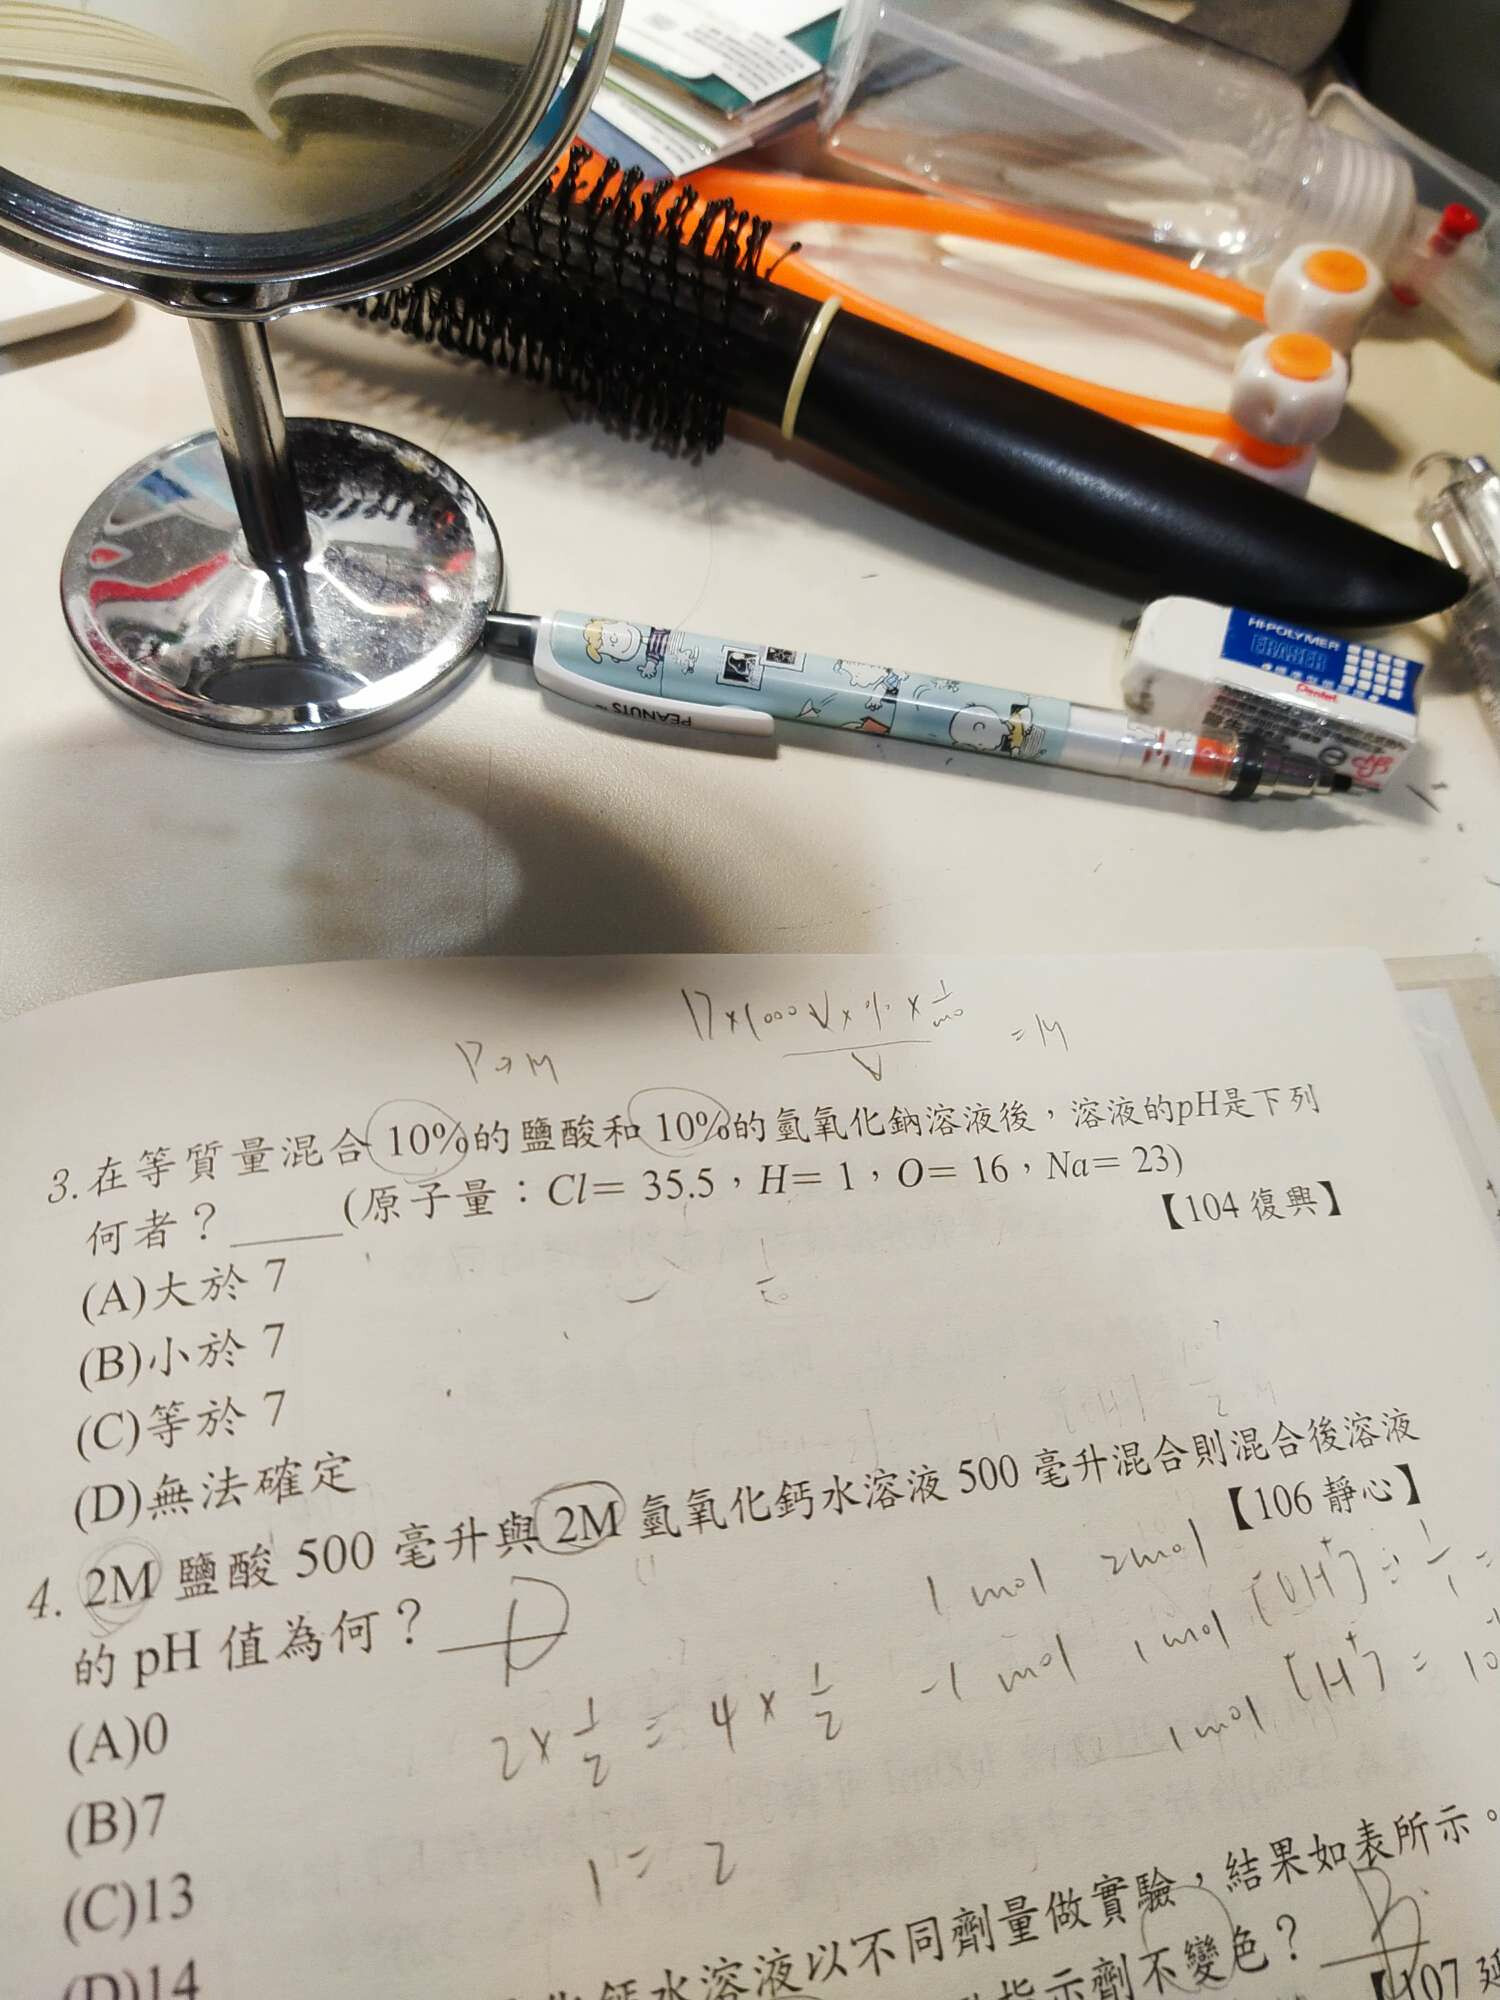 HI-POLYMER
ERASER
Pentel
PEANUTS
P→M
=M
3.在等質量混合10%的鹽酸和10%的氫氧化鈉溶液後，溶液的pH是下列
何者？____(原子量：Cl= 35.5，H= 1，O= 16，Na= 23)
【104 復興】
(A)大於 7
(B)小於 7
(C)等於 7
(D)無法確定
4. 2M 鹽酸 500 毫升與 2M 氫氧化鈣水溶液 500 毫升混合則混合後溶液
的 pH 值為何？ D
【106 靜心】
1 mol 2mol
-1 mol 1 mol
1 mol
2×1/2=4×1/2
1=2
(A)0
(B)7
(C)13
(D)14
鈣水溶液以不同劑量做實驗，結果如表所示。
指示劑不變色？ B
【107 延